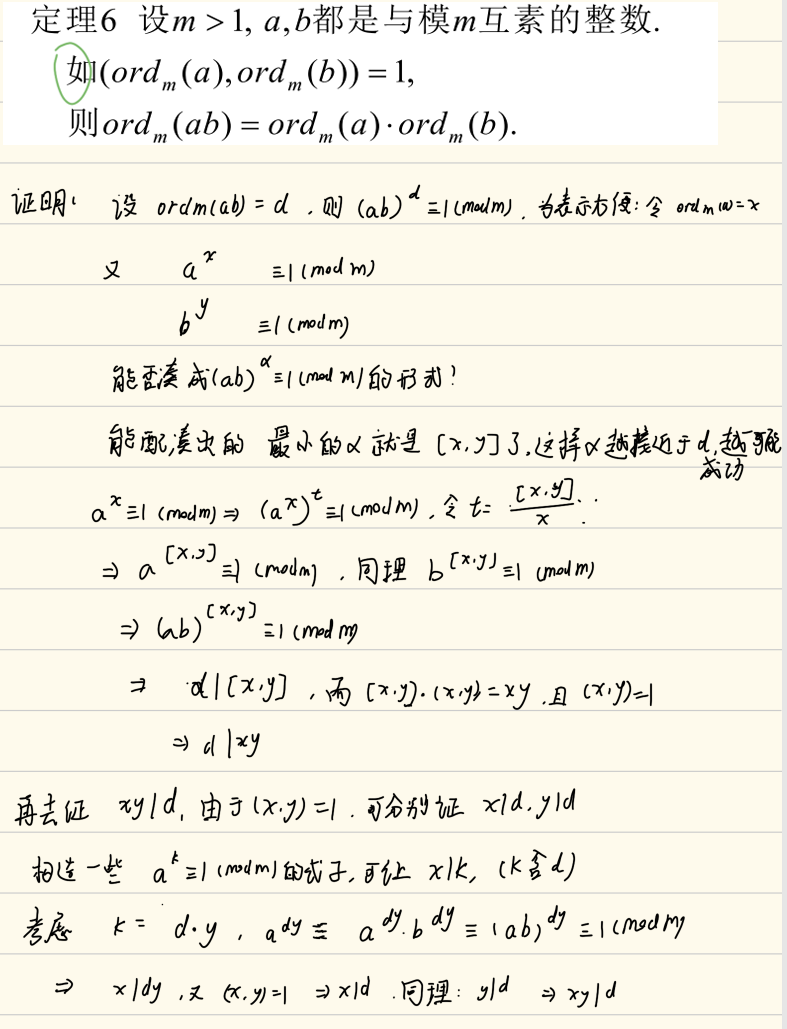 定理6 设m > 1, a,b都是与模m互素的整数.
如(ord_m(a),ord_m(b)) = 1,
则ord_m(ab) = ord_m(a)·ord_m(b).
证明: 设 ordm(ab) = d , 则 (ab)^d ≡1(modm), 为表示方便: 令 ordm(a)=x
又 a^x ≡1(mod m)
b^y ≡1(modm)
能否凑成(ab)^α≡1(mod m)的形式?
能配凑出的 最小的α就是 [x,y]了,这样α越接近于d,越可能
成功
a^x≡1(modm)⇒ (a^x)^t≡1(modm), 令 t= [x,y]/x
⇒ a^[x,y]≡1(modm), 同理 b^[x,y]≡1(modm)
⇒ (ab)^[x,y] ≡1(mod m)
⇒ d|[x,y], 而 [x,y]·(x,y)=xy ,且 (x,y)=1
⇒ d|xy
再去证 xy|d, 由于(x,y)=1, 可分别证 x|d, y|d
构造一些 a^k≡1(modm)的式子, 可让 x|k, (k含d)
考虑 k= d·y , a^dy ≡ a^dy·b^dy ≡ (ab)^dy ≡1(modm)
⇒ x|dy ,又 (x,y)=1 ⇒x|d .同理: y|d ⇒ xy|d